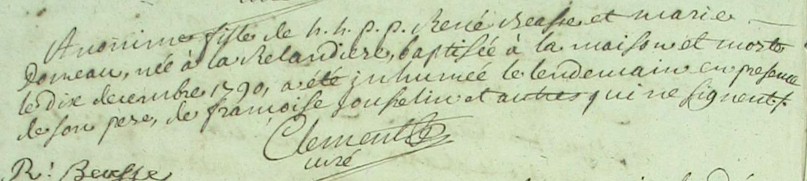 Anonime fille de h. h. p. p. René Beasse et marie
Domeau, née à la Relandiere, baptisée à la maison et morte
le dix decembre 1790, a été inhumée le lendemain en presence
de son pere, de françoise Jousselin et autres qui ne signent.
Clement
curé
R: Beasse